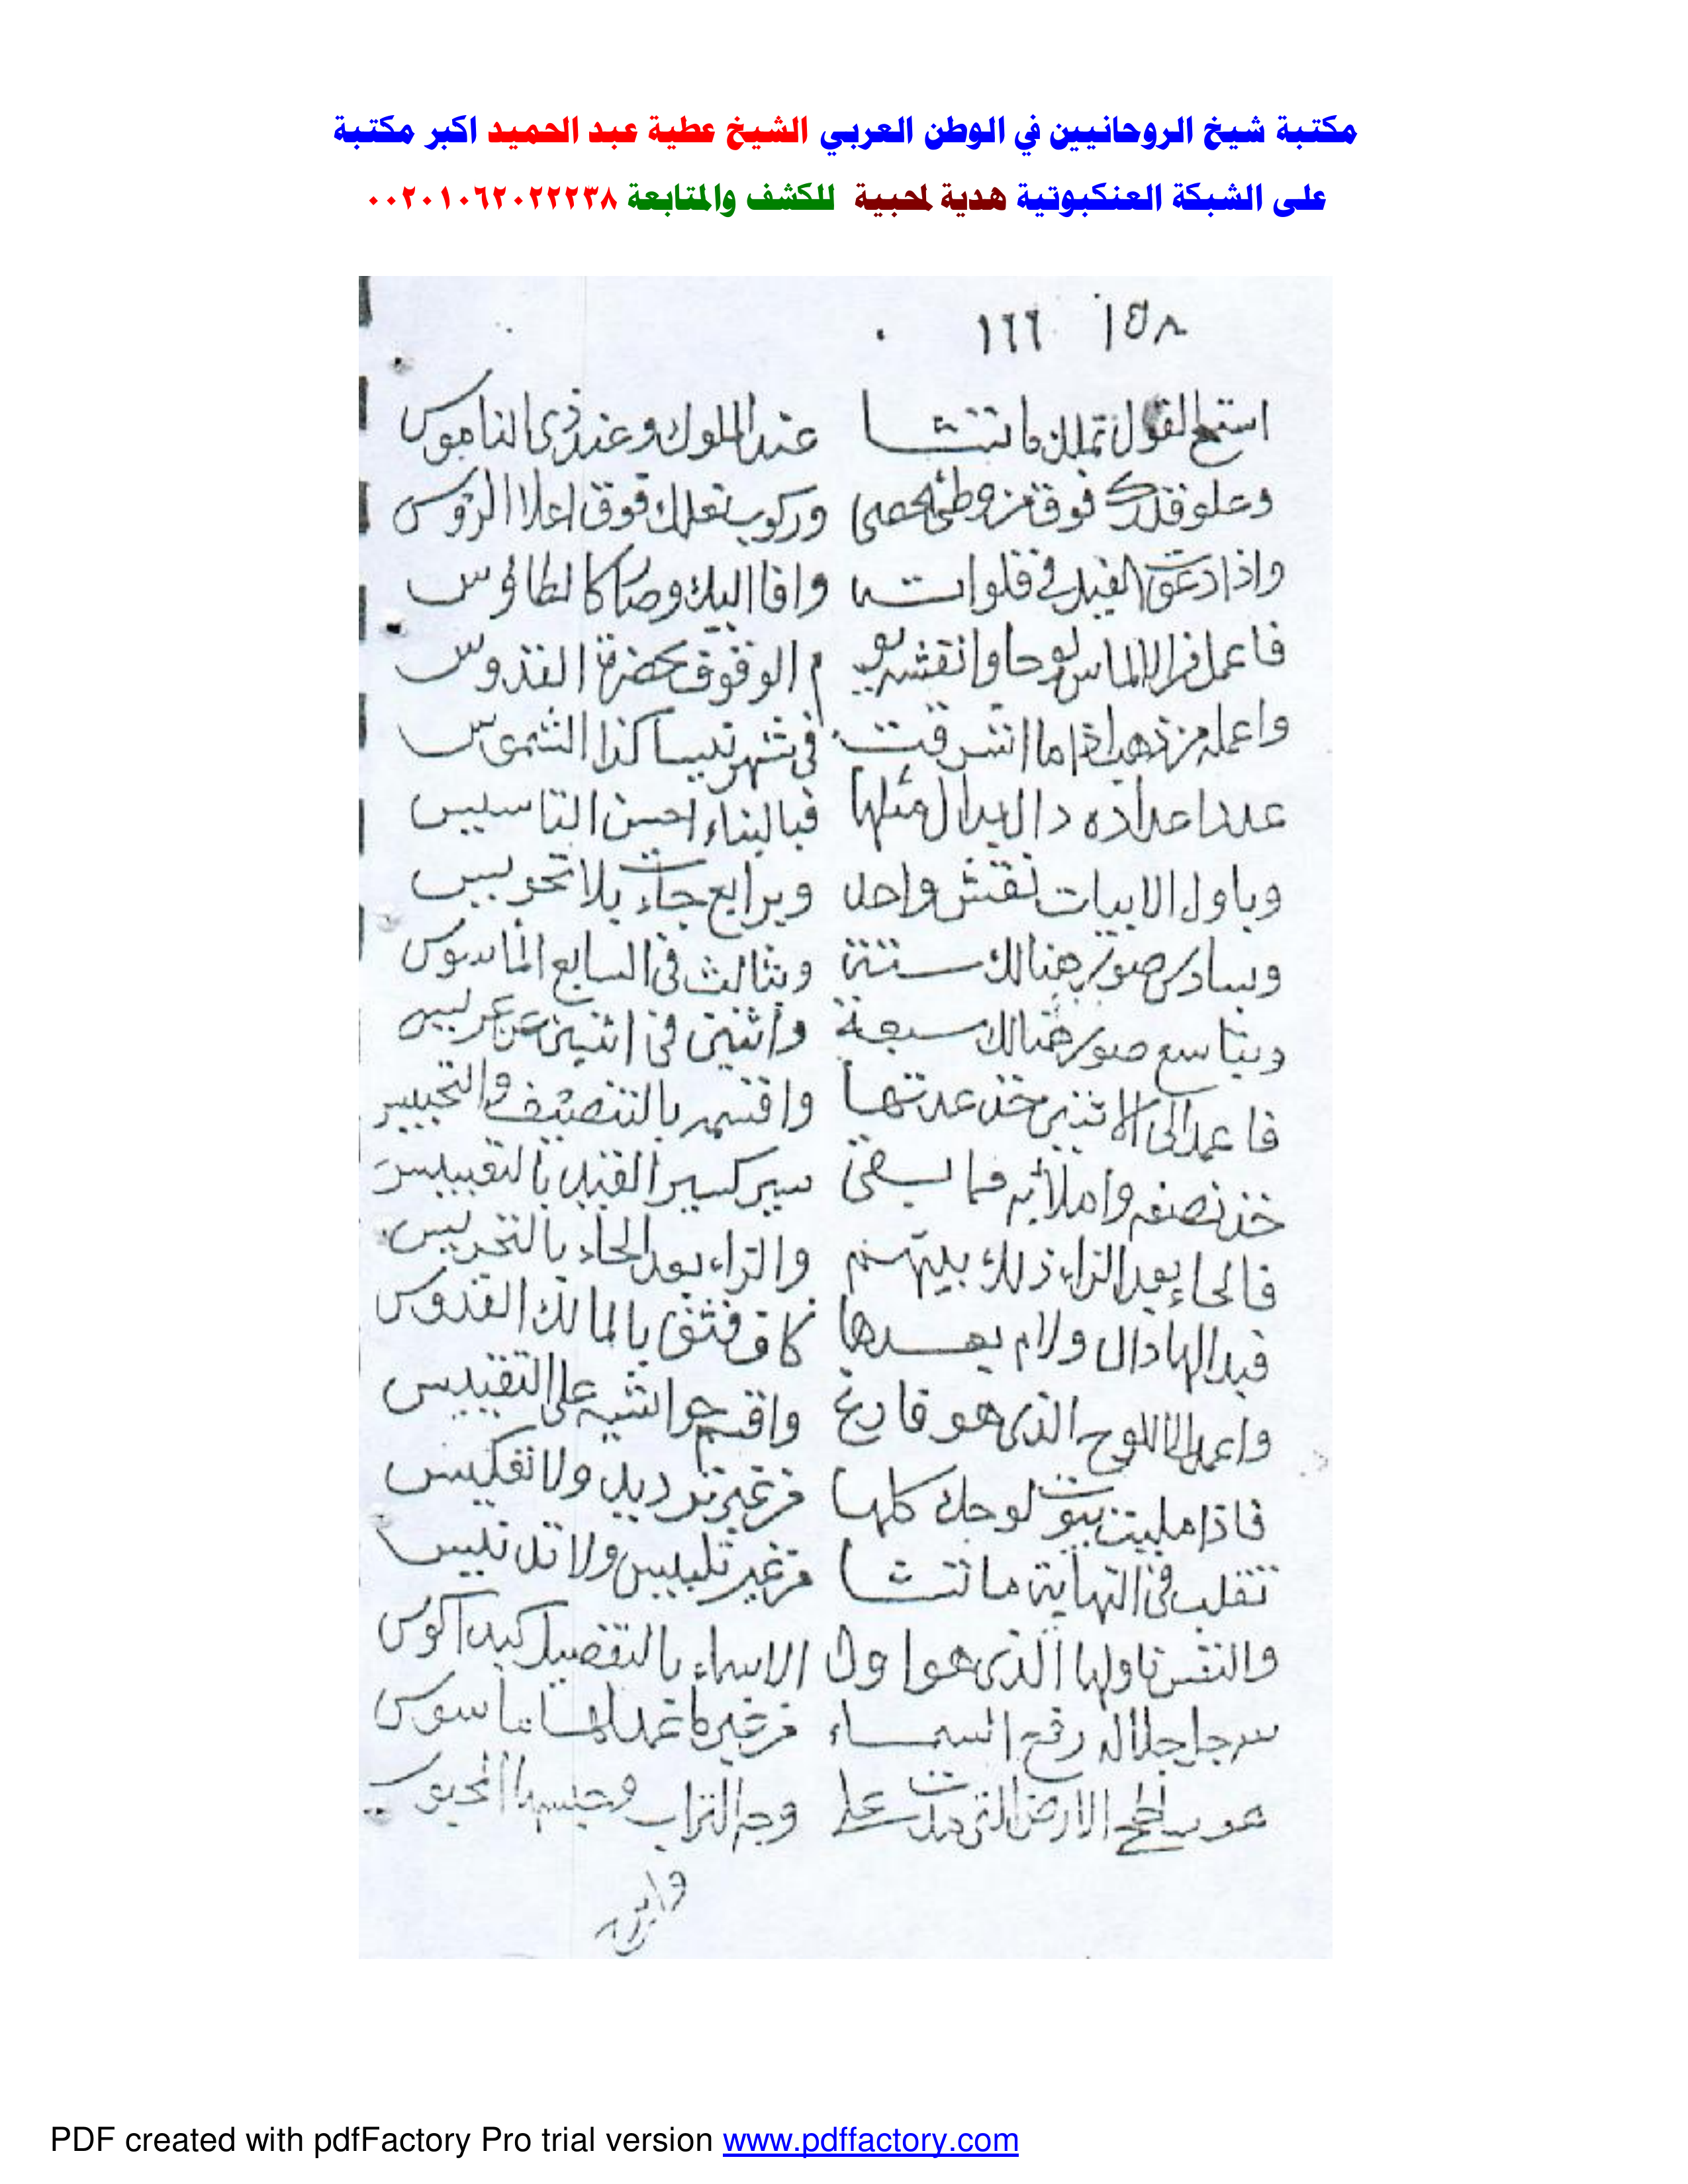 مكتبة شيخ الروحانيين في الوطن العربي الشيخ عطية عبد الحميد اكبر مكتبة
على الشبكة العنكبوتية هدية لمحبية للكشف والمتابعة ٠٠٢٠١٠٦٢٠٢٢٢٣٨
١٥٨ ١٦٦
القول تملك ما تشا عند الملوك وعند ذى الناموس
وعلو قدرك فوق من وطئ الحصى وركوب نعلك فوق اعلا الرؤس
واذا دعوت الفيل فى فلواته وافا اليك وصار كالطاؤس
فاعمل من الالماس لوحا وانقشه يوم الوقوف بحضرة القدوس
واعمله من ذهب اذا ما اشرقت فى شهر نيسا كذا الشموس
عددا عداده دال ابدال مثلها فبالبناء احسن التاسيس
وباول الابيات نقش واحد وبرابع جاء بلا تحويس
وبسادس صور هنالك ستة وبثالث فى السابع المانوس
وبتاسع صور هنالك سبعة واثنين فى اثنين
فاعمد الى الاثنين خذ عدتها واقسم بالتنصيف والتخييس
خذ نصفه واملأ به فما يبقى سير كسير الفيل بالتقييس
فالحاء بعد الزاء ذلك بينهم والزاء بعد الحاء بالتحريس
فبدالها دال ولام بعدها كاف فثق بالمالك القدوس
واعمد الى اللوح الذى هو فارغ واقسم حواشيه على التقييس
فاذا مليت بيوت لوحك كلها من غير ترديد ولا تفكيس
تقلب فى النهاية ما تشا من غير تلبيس ولا تدنيس
والنقش اولها الذى هو اول الاسماء بالتفصيل
سر جا جلاله رفع السماء من غير ما عمد لها
هو سطح الارض التى مدت على وجه التراب
PDF created with pdfFactory Pro trial version www.pdffactory.com